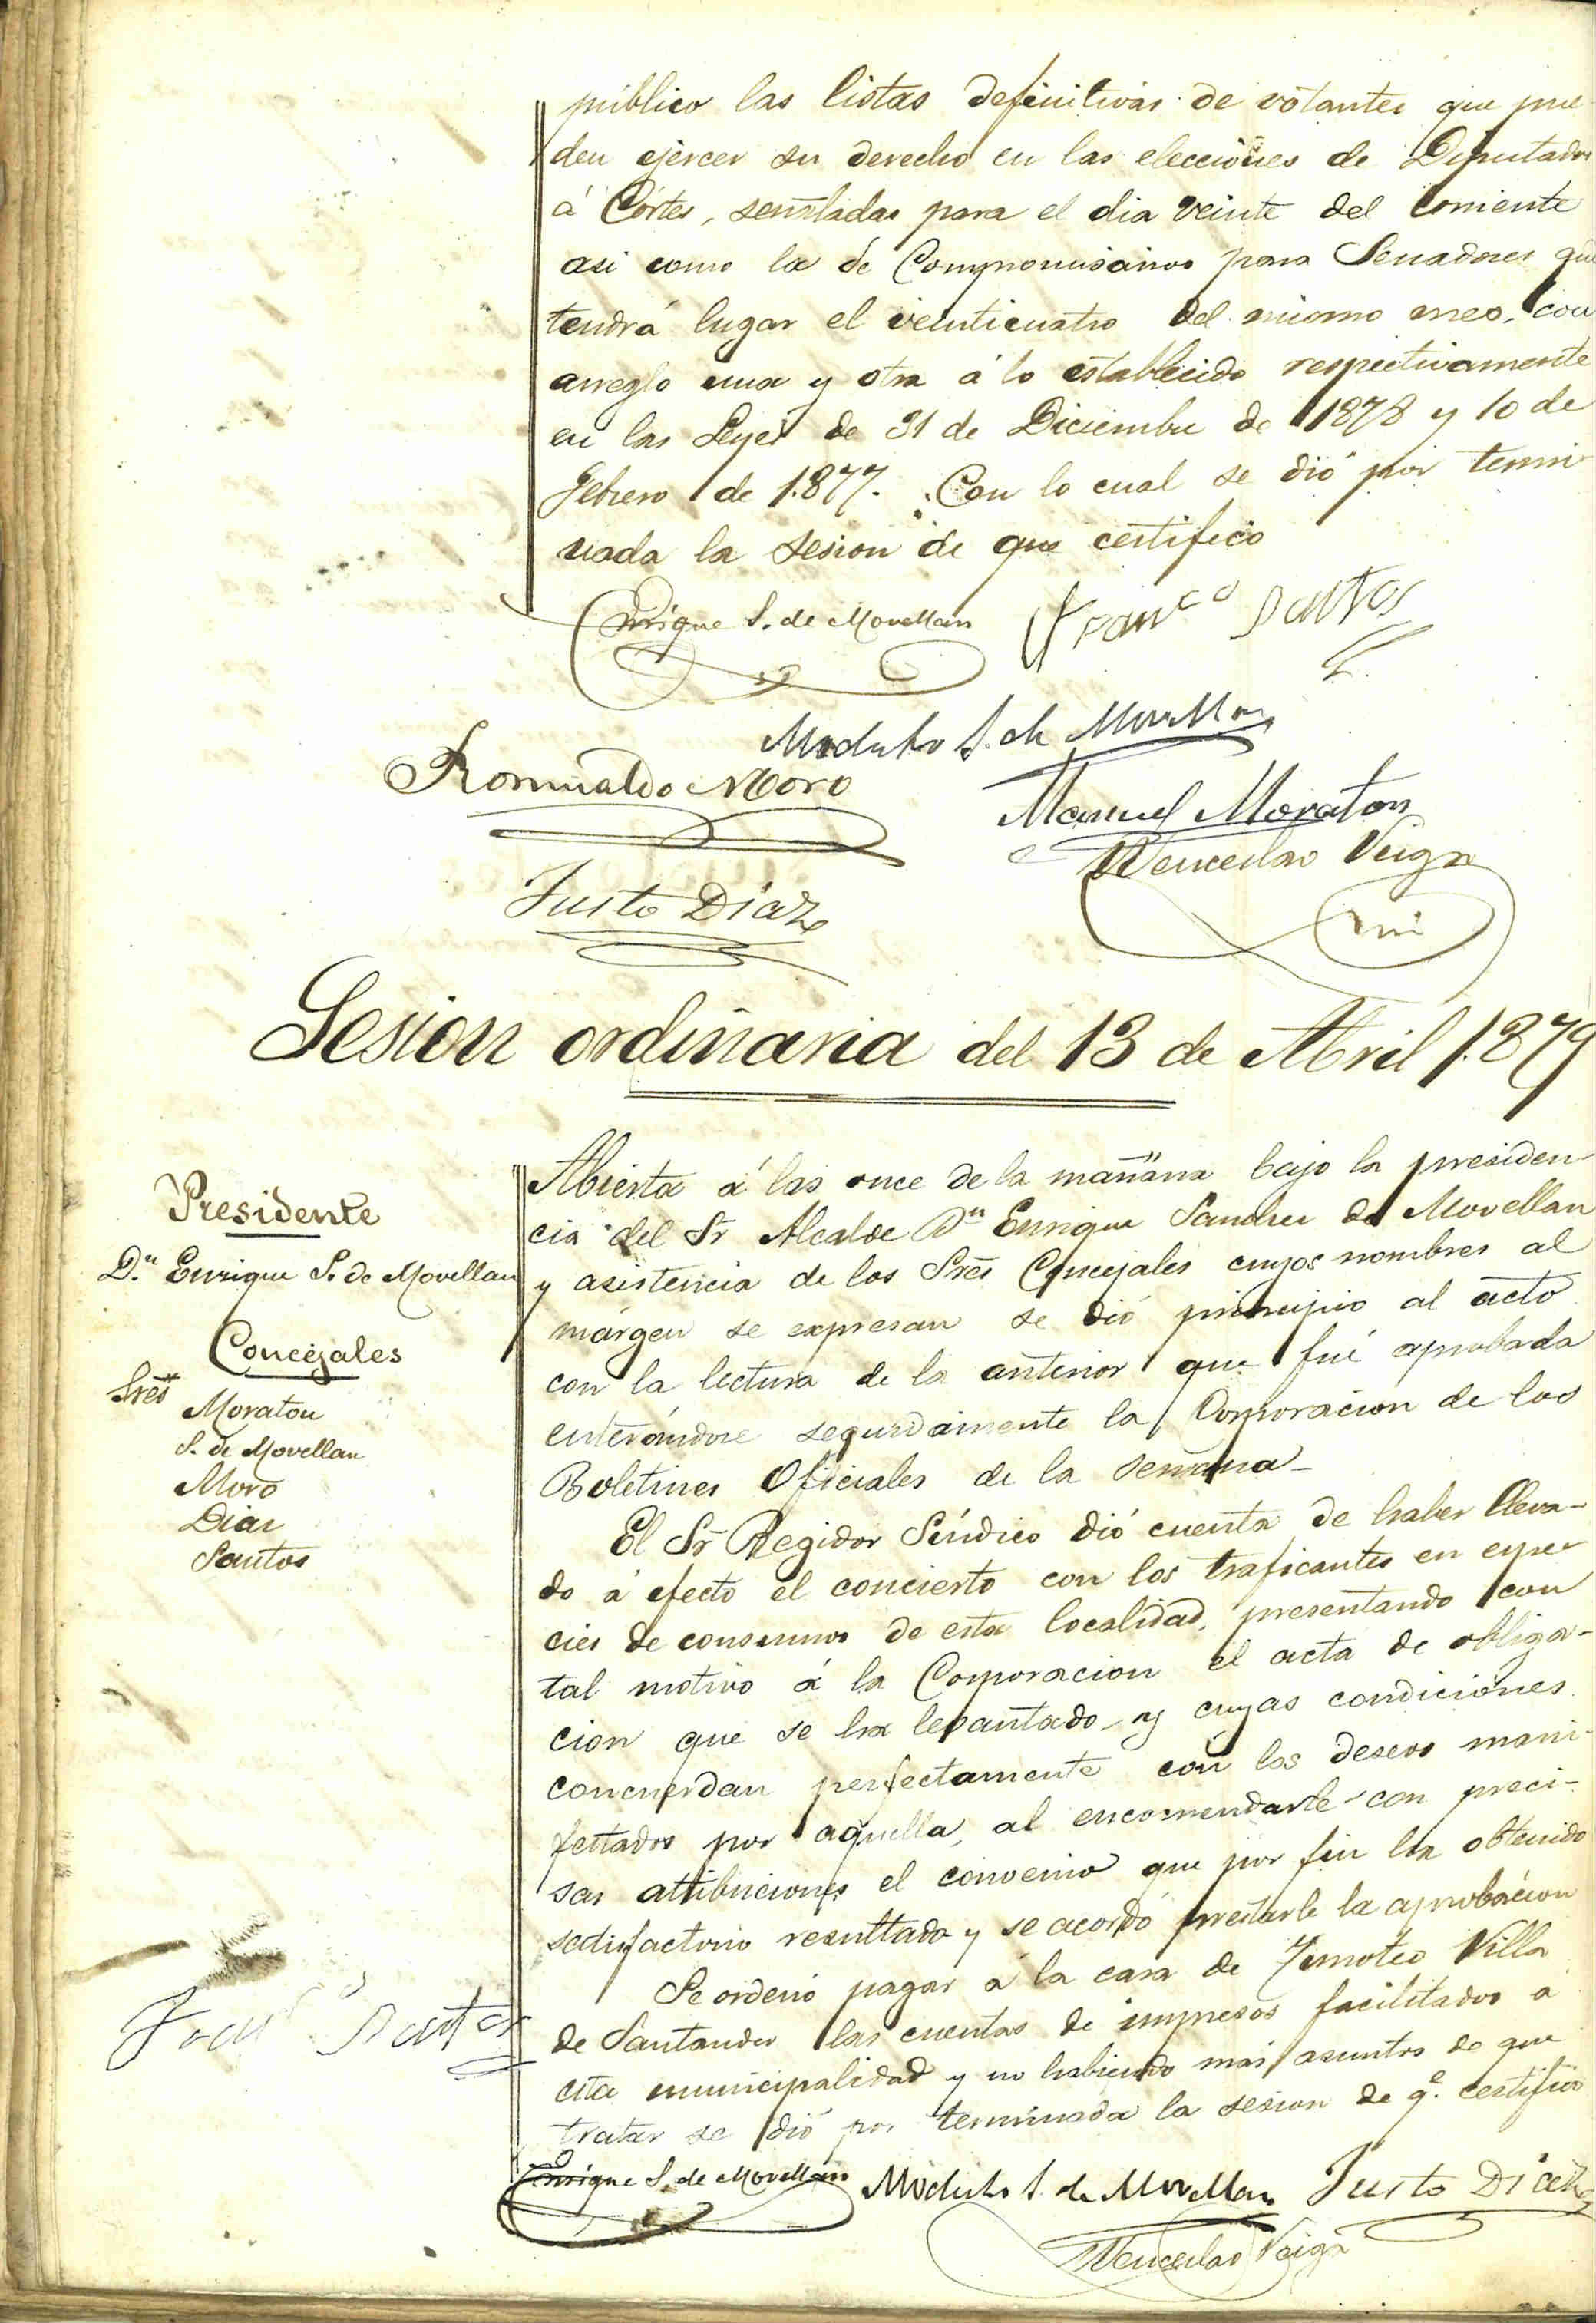 público las listas definitivas de votantes que pue
den ejercer su derecho en las elecciones de Diputados
á Córtes, señaladas para el dia veinte del corriente
asi como la de Compromisarios para Senadores que
tendrá lugar el veinticuatro del mismo mes, con
arreglo una y otra á lo establecido respectivamente
en las Leyes de 31 de Diciembre de 1878 y 10 de
Febrero de 1.877. Con lo cual se dió por termi
nada la sesion de que certifico
Enrique S. de Movellan Franco Santos
Modesto S. de Movellan
Romualdo Moro
Manuel Moraton
Wenceslao Veiga
Justo Díaz
Sesion ordinaria del 13 de Abril 1.879
Presidente
Dn Enrique S. de Movellan
Concejales
Sres
Moraton
S. de Movellan
Moro
Diaz
Santos
Abierta á las once de la mañana bajo la presiden
cia del Sr Alcalde Dn Enrique Sanchez de Movellan
y asistencia de los Sres Concejales cuyos nombres al
márgen se expresan se dió principio al acto
con la lectura de la anterior que fué aprobada
enterándose seguidamente la Corporacion de los
Boletines Oficiales de la semana-
El Sr Regidor Síndico dió cuenta de haber lleva-
do á efecto el concierto con los traficantes en espe
cies de consumos de esta localidad, presentando con
tal motivo á la Corporacion el acta de obliga-
cion que se ha levantado y cuyas condiciones
concuerdan perfectamente con los deseos mani-
festados por aquella, al encomendarle con preci-
sas attibuciones el convenio que por fin ha obtenido
satisfactorio resultado y se acordó prestarle la aprobacion
Se ordenó pagar á la casa de Timoteo Villa
de Santander las cuentas de impresos facilitados á
esta municipalidad y no habiendo mas asuntos de que
tratar se dió por terminada la sesion de qe. certifico
Franco Santos
Enrique S. de Movellan Modesto S. de Movellan Justo Díaz
Wenceslao Veiga